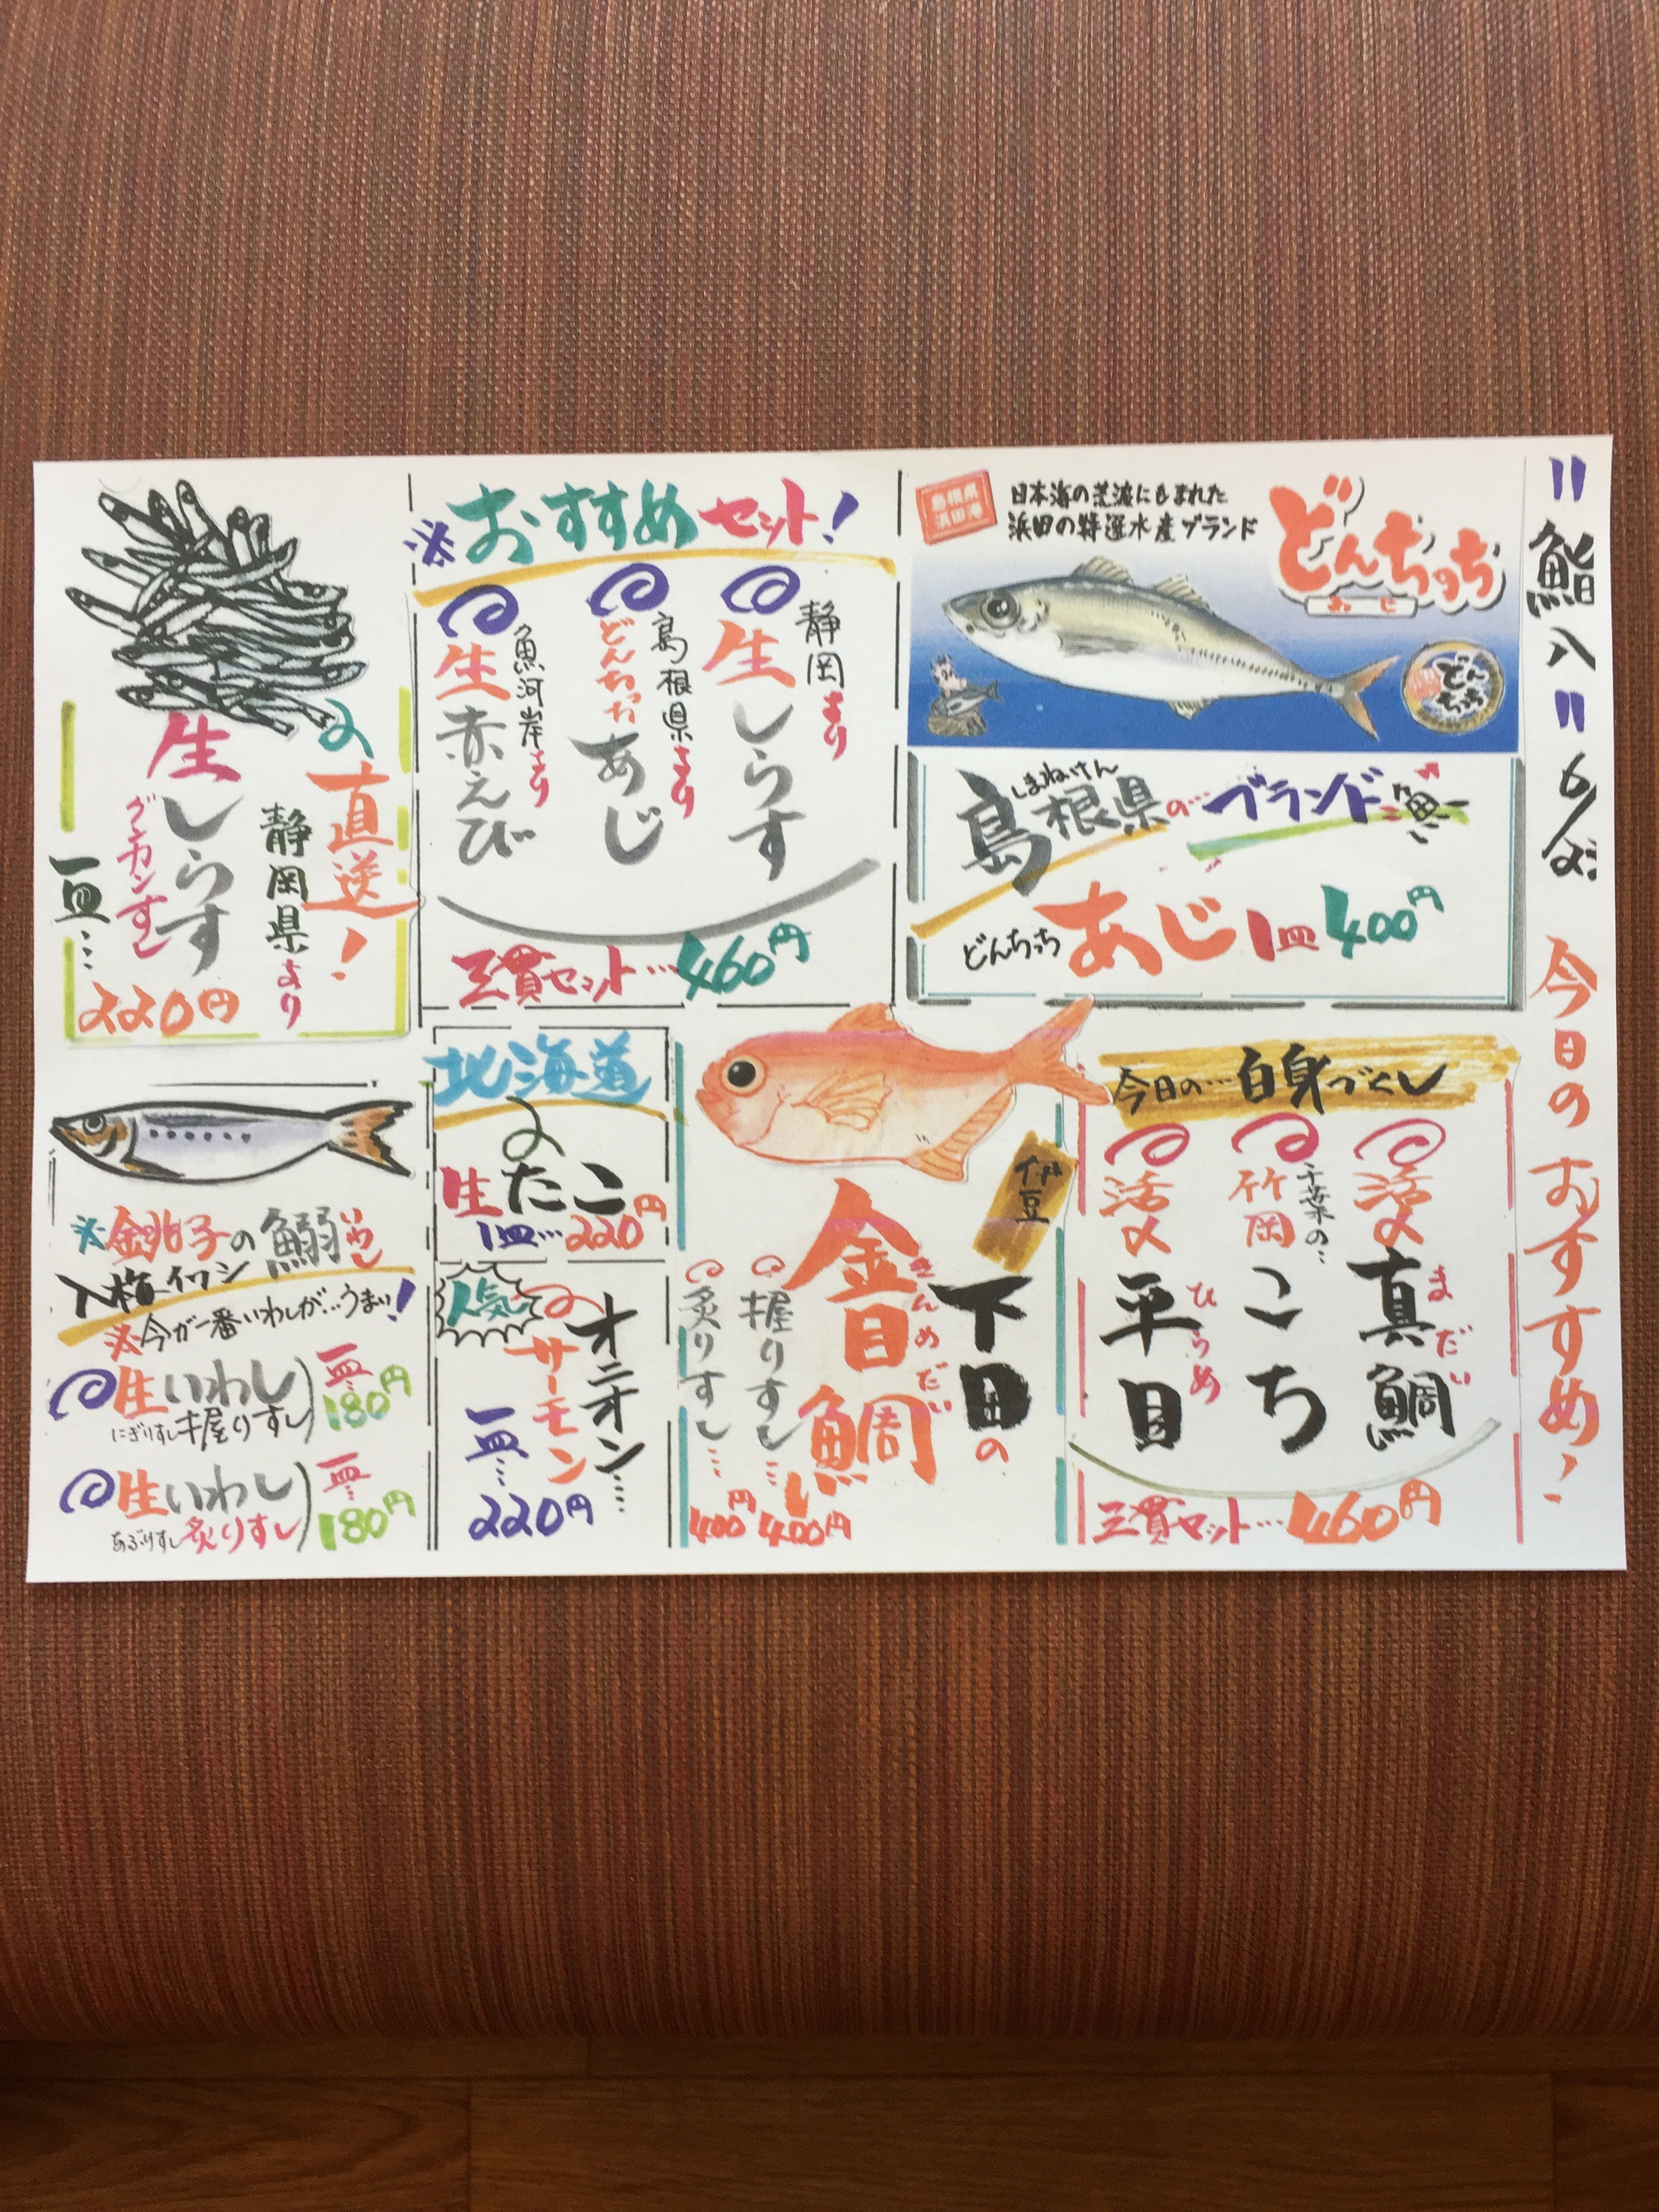 "鮨八"
今日のおすすめ!
島根県
浜田港
日本海の荒波にもまれた
浜田の特選水産ブランド
どんちっち
あじ
どんちっち
しまねけん
島根県のブランド魚
どんちっちあじ1皿400円
※おすすめセット!
静岡より
生しらす
島根県より
どんちっち
あじ
魚河岸より
生赤えび
三貫セット…460円
直送!
静岡県より
生しらす
グンカンすし
一皿…
220円
今日の…白身づくし
活〆
真鯛
まだい
千葉の…
竹岡
こち
活〆
平目
ひらめ
三貫セット…460円
伊豆
下田の
金目鯛
きんめだい
握りすし…
400円
炙りすし…
400円
北海道
生たこ
1皿…220円
人気
オニオン…
サーモン
一皿…
220円
※銚子の鰯
いわし
入梅イワシ
※今が一番いわしが…うまい!
生いわし
にぎりすし握りすし
一皿…
180円
生いわし
あぶりすし炙りすし
一皿…
180円